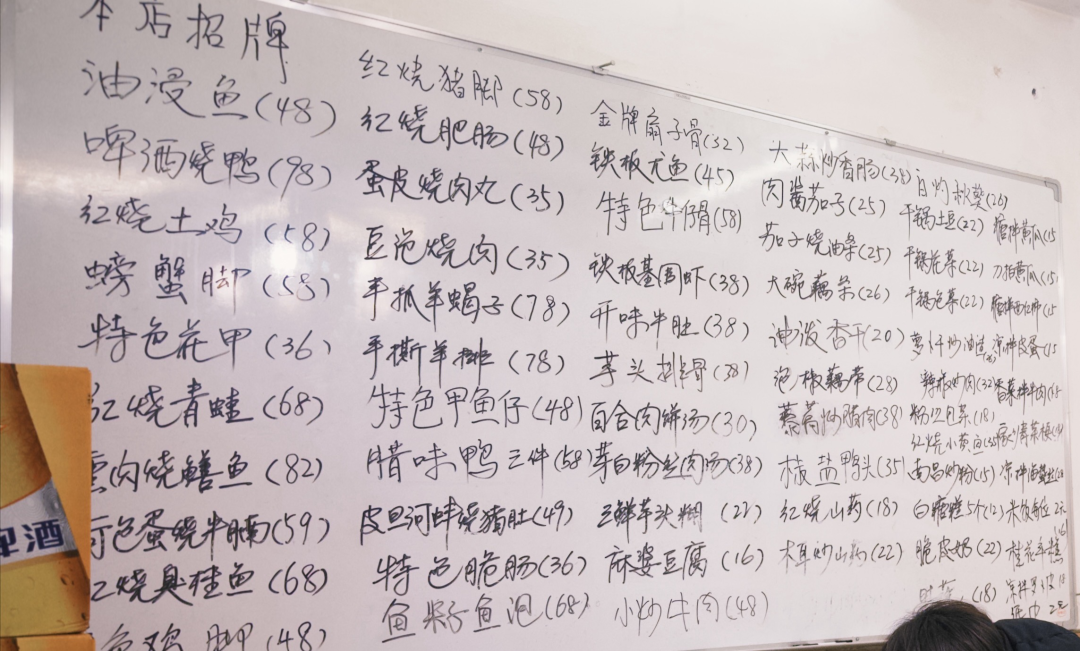 本店招牌
油浸鱼(48)
啤酒烧鸭(98)
红烧土鸡(58)
螃蟹脚(58)
特色花甲(36)
红烧青蛙(68)
肉烧鳝鱼(82)
色蛋烧牛腩(59)
红烧臭桂鱼(68)
鸡脚(48)
红烧猪脚(58)
红烧肥肠(48)
蛋皮烧肉丸(35)
豆泡烧肉(35)
手抓羊蝎子(78)
手撕羊排(78)
特色甲鱼仔(48)
腊味鸭三件(58)
皮旦河蚌烧猪肚(49)
特色脆肠(36)
鱼籽鱼泡(68)
金牌扇子骨(32)
铁板尤鱼(45)
特色牛仔骨(58)
铁板基围虾(38)
开味牛肚(38)
芋头排骨(38)
百合肉饼汤(30)
茅白粉丝肉汤(38)
三鲜芋头糊(22)
麻婆豆腐(16)
小炒牛肉(48)
大蒜炒香肠(38)
肉酱茄子(25)
茄子烧油条(25)
大碗藕条(26)
油泼香干(20)
泡椒藕带(28)
藜蒿炒腊肉(38)
椒盐鸭头(35)
红烧山药(18)
木耳炒山药(22)
白灼秋葵(26)
干锅土豆(22)
干锅花菜(22)
干锅包菜(22)
萝卜干炒油渣
辣椒炒肉(32)
粉丝包菜(18)
红烧小黄鱼
南昌炒粉(15)
白糖糕5个(12)
脆皮奶(22)
(18)
糖拌黄瓜(15
刀拍黄瓜(15
糖拌西红柿(15
凉拌皮蛋(15
香菜拌牛肉
凉拌海蜇
桂花年糕
凉拌